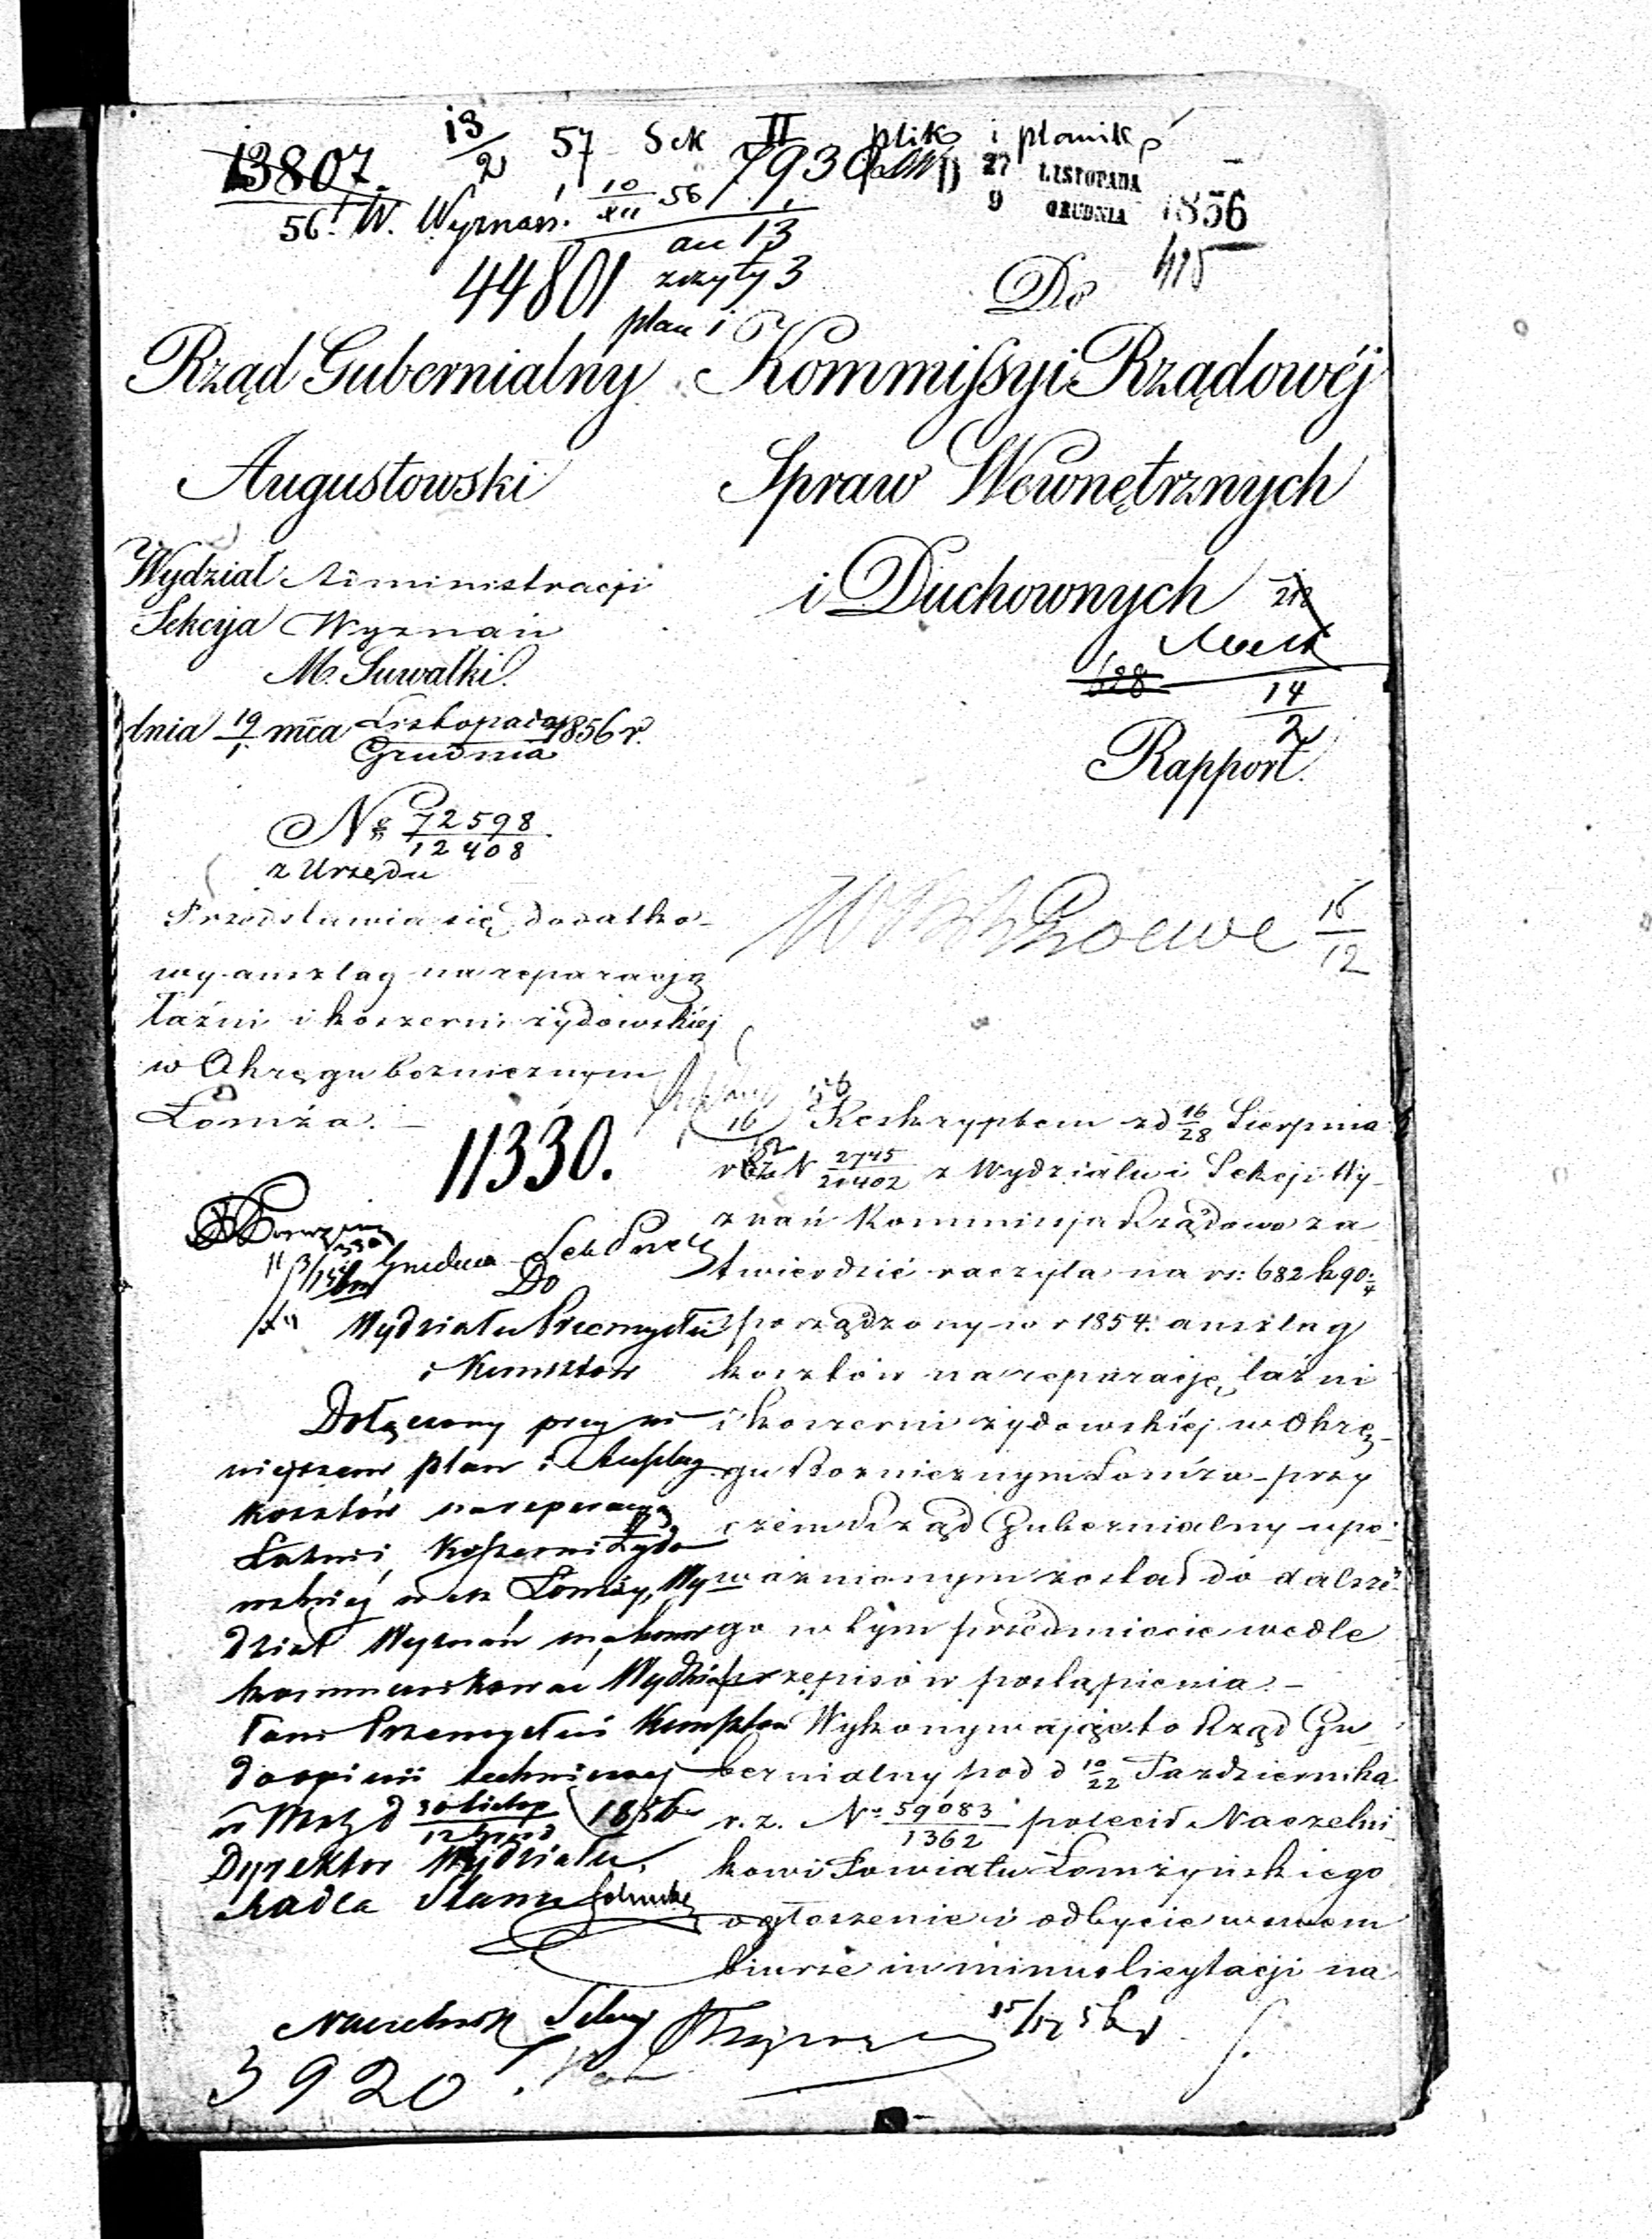 13/2 57 Sek II plik i planik
13807.
56. W. Wyznań. 10/XII 56
7930
D 27 LISTOPADA
9 GRUDNIA 1856
an 13
44801 zszyty 3
plan 1
415
Do
Rząd Gubernialny
Augustowski
Wydział Administracji
Sekcyja Wyznań
M. Suwałki.
dnia 19/1 mca Listopada/Grudnia 1856 r.
№ 72598/12408
z Urzędu
Przedstawia się dodatko-
wy anszlag na reparacją
łaźni i koszerni żydowskiéj
w Okręgu bożnicznym
Łomża. –
11330.
Kommissyi Rządowéj
Spraw Wewnętrznych
i Duchownych
628
14/2
Rapport.
16/12
Reskryptem z d 16/28 Sierpnia
r b № 2745/21402 z Wydziału i Sekcji Wy-
znań Kommissja Rządowa za-
twierdzić raczyła na rs: 682 k 90
sporządzony w r 1854. anszlag
kosztów na reparacje łaźni
i koszerni żydowskiéj w Okrę-
gu Bożnicznym Łomża – przy
czem Rząd Gubernialny upo-
ważnionym został do dalsze-
go w tym przedmiocie wedle
przepisów postąpienia. –
Wykonywając to Rząd Gu-
bernialny pod d 10/22 Października
r. z. № 59083/1362 polecił Naczelni-
kowi Powiatu Łomżyńskiego
ogłoszenie i odbycie w swem
biurze in minus licytacji na
Do
Wydziału Przemysłu
i Kunsztów
Dołączony przy ni-
niejszem plan i Anszlag
kosztów na reperacyą
Łaźni, Koszerni Żydo-
wskiéj w m Łomży, Wy-
dział Wyznań ma honor
kommunikować Wydzia-
łowi Przemysłu i Kunsztów
do opinii technicznej
w Warz d 30 Listop/12 Grud 1856 r
Dyrektor Wydziału,
Radca Stanu
Naczelnik Sekcyi
15/12 56 r
3920